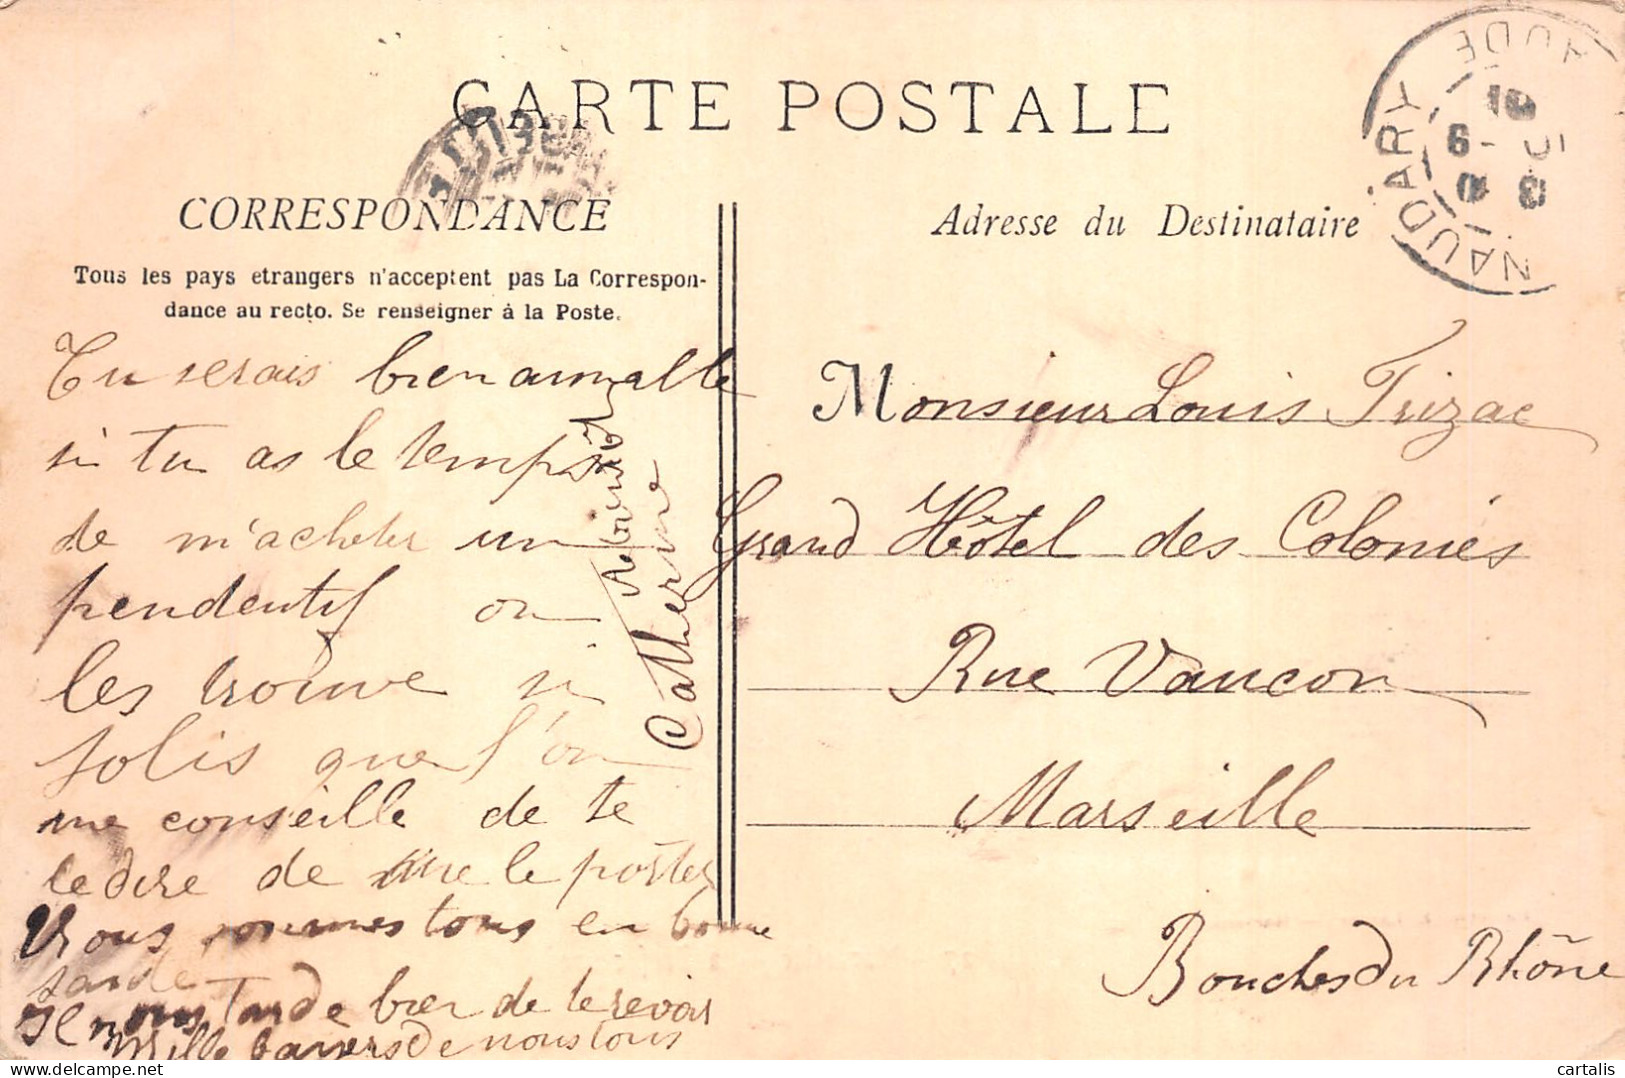 CARTE POSTALE
CORRESPONDANCE
Tous les pays etrangers n'acceptent pas La Correspon-
dance au recto. Se renseigner à la Poste.
Tu serais bien aimable
si tu as le temps
de m'acheter un
pendentif on
les trouve si
jolis que l'on
me conseille de te
le dire de me le porter
Nous sommes tous en bonne
santé
Il nous tarde bien de te revoir
Mille baisers de nous tous
Au revoir
Catherine
Adresse du Destinataire
Monsieur Louis Trizac
Grand Hôtel des Colonies
Rue Vaucon
Marseille
Bouches du Rhône
NAUDARY
AUDE
cartalis